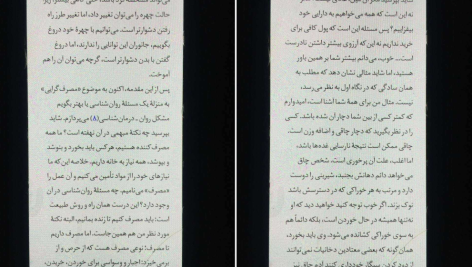 حالت چهره را می‌توان تغییر داد، اما تغییر طرز راه
رفتن دشوارتر است. می‌توانیم با چهرهٔ خود دروغ
بگوییم، جانوران این توانایی را ندارند، اما دروغ
گفتن با بدن دشوارتر است، گرچه می‌توان آن را هم
آموخت.
پس از این مقدمه، اکنون به موضوع «مصرف‌گرایی»
به منزلهٔ یک مسئلهٔ روان‌شناسی یا بهتر بگویم
مشکل روان ـ درمان‌شناسی(۸) می‌پردازم. شاید
بپرسید چه نکتهٔ مبهمی در آن نهفته است؟ ما همه
مصرف کننده هستیم، هرکس باید بخورد و بنوشد
و بپوشد، همه نیاز به خانه داریم. خلاصه این که ما
نیازهای خود را از مواد تأمین می‌کنیم و آن عمل را
«مصرف» می‌نامیم. چه مسئلهٔ روان‌شناسی در آن
وجود دارد؟ این درست همان راه و روش طبیعت
است: باید مصرف کنیم تا زنده بمانیم، البته نکتهٔ
مورد نظر من هم همین جاست. اما مصرف داریم
تا مصرف! نوعی مصرف هست که از حرص و آز
برمی‌خیزد: اجبار و وسواسی برای خوردن، خریدن،
نه این است که همه می‌خواهیم به دارایی خود
بیفزاییم؟ پس مسئله این است که پول کافی برای
خرید نداریم نه این که آرزوی بیشتر داشتن نادرست
است... خوب، می‌دانم بیشتر شما بر همین باور
هستید، اما شاید مثالی نشان دهد که مطلب به
همان سادگی که در نگاه اول به نظر می‌رسد،
نیست. مثال من برای همهٔ شما آشنا است، امیدوارم
که کمتر کسی از بین شما دچار آن شده باشد. کسی
را در نظر بگیرید که دچار چاقی و اضافه وزن است.
چاقی ممکن است نتیجهٔ نارسایی غده‌ها باشد،
اما اغلب، علت آن پرخوری است. شخص چاق
می‌خواهد دائم دهانش بجنبد، شیرینی را دوست
دارد و مرتب به هر خوراکی که در دسترسش باشد
نوک بزند. اگر خوب توجه کنید خواهید دید که او
نه‌تنها همیشه در حال خوردن است، بلکه دائماً هم
به سوی خوراکی کشانده می‌شود. وی باید بخورد،
همان‌گونه که بعضی معتادین دخانیات نمی‌توانند